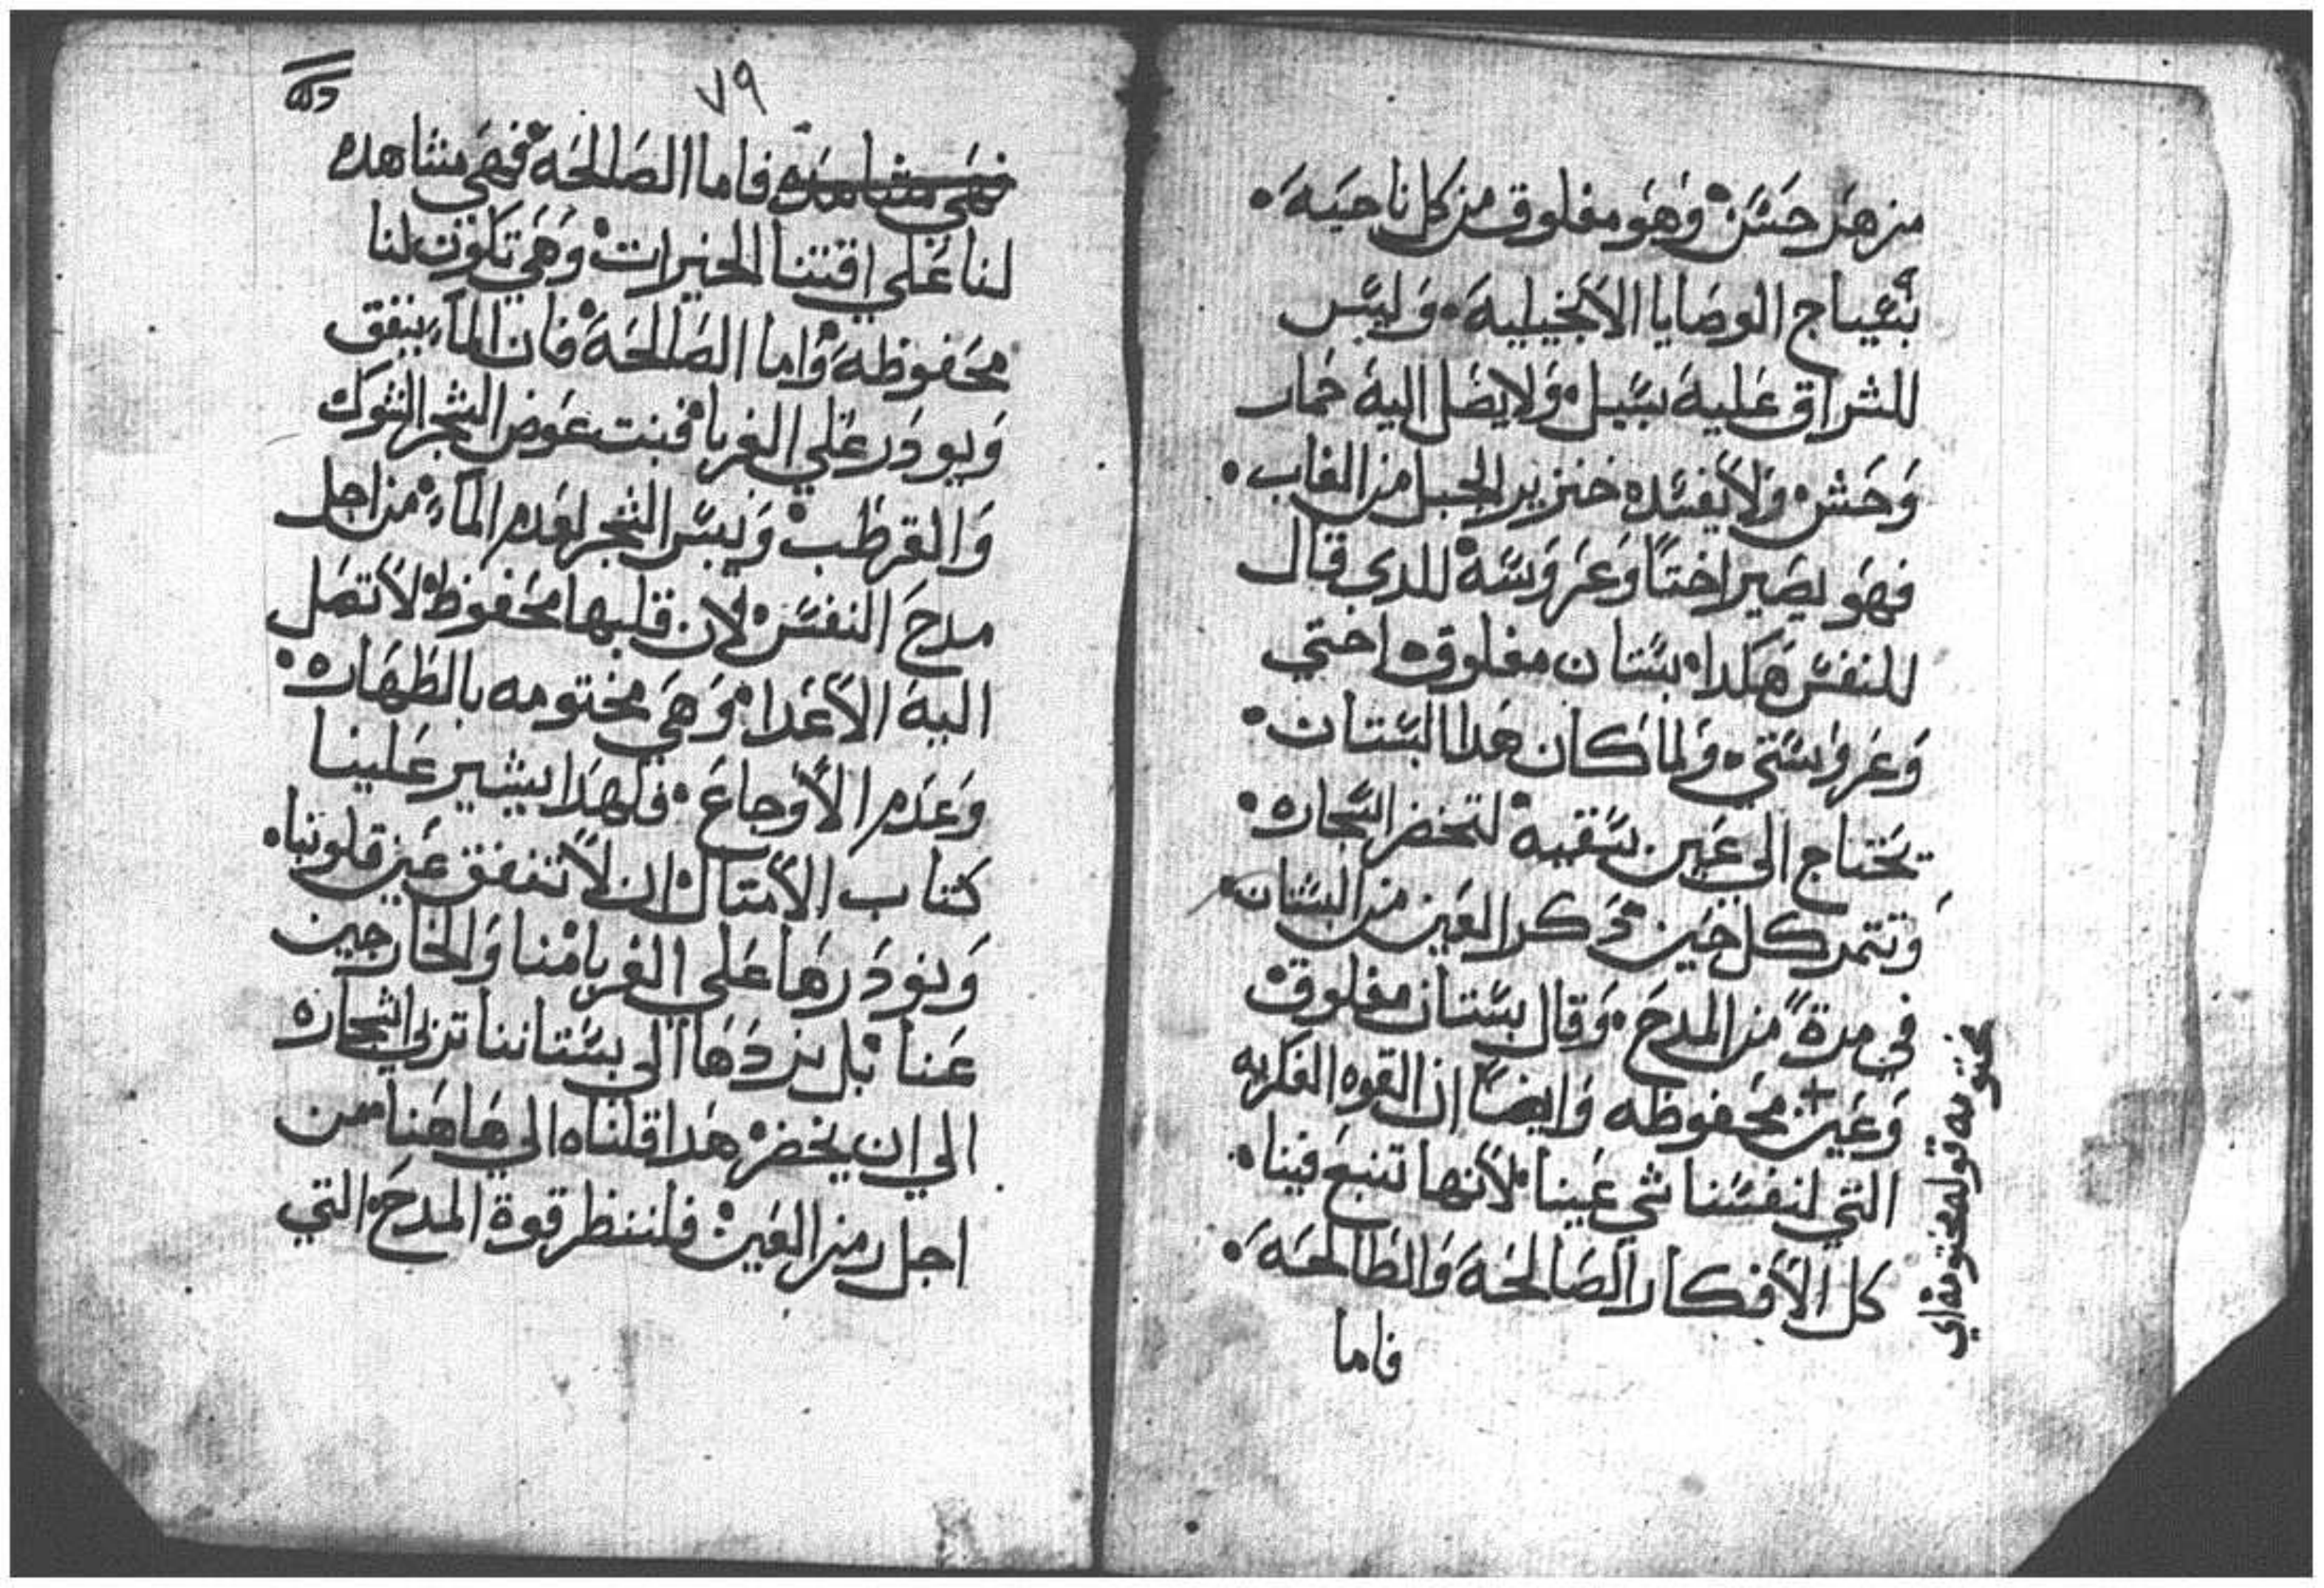 من هدر حسن وهو مغلوق من كل ناحيه
بسياج الوصايا الانجيليه وليس
للسراق عليه سبيل ولا يصل اليه حمار
وحش ولا يفسده خنزير الجبل من الغاب
فهو يصير اختا وعروسه للدي قال
للنفس هكدا بستان مغلوق اختي
وعروستي ولما كان هدا البستان
يحتاج الي عين تسقيه لتخضر اشجاره
وتتمر كل حين دكر العين من البستان
في مدة من المدح وقال بستان مغلوق
وعين محفوظه وايضا ان القوه الفكريه
التي لنفسنا تسمي عينا لانها تنبع فينا
كل الافكار الصالحه والطالحه
فاما
مختومه قوله مختومه اي
٧٩
فهي مشاهده فاما الصالحه فهي مشاهده
لنا علي اقتنا الخيرات وهي تكون لنا
محفوظه واما الطالحه فان الماء ينفق
ويودر علي الغربا فينبت عوض الشجر الشوك
والقرطب ويبس الشجر لعدم الماء من اجل
مدح النفس لان قلبها محفوظ لا تصل
اليه الاعدا وهي مختومه بالطهاره
وعدم الاوجاع فلهدا يشير علينا
كتاب الامتال ان لا تنفق عين قلوبنا
ونودرها علي الغربا منا والخارجين
عنا بل نردها الي بستاننا تربي اشجاره
الي ان يخضر هدا قلناه الي هاهنا من
اجل رمز العين فلننظر قوة المدح التي